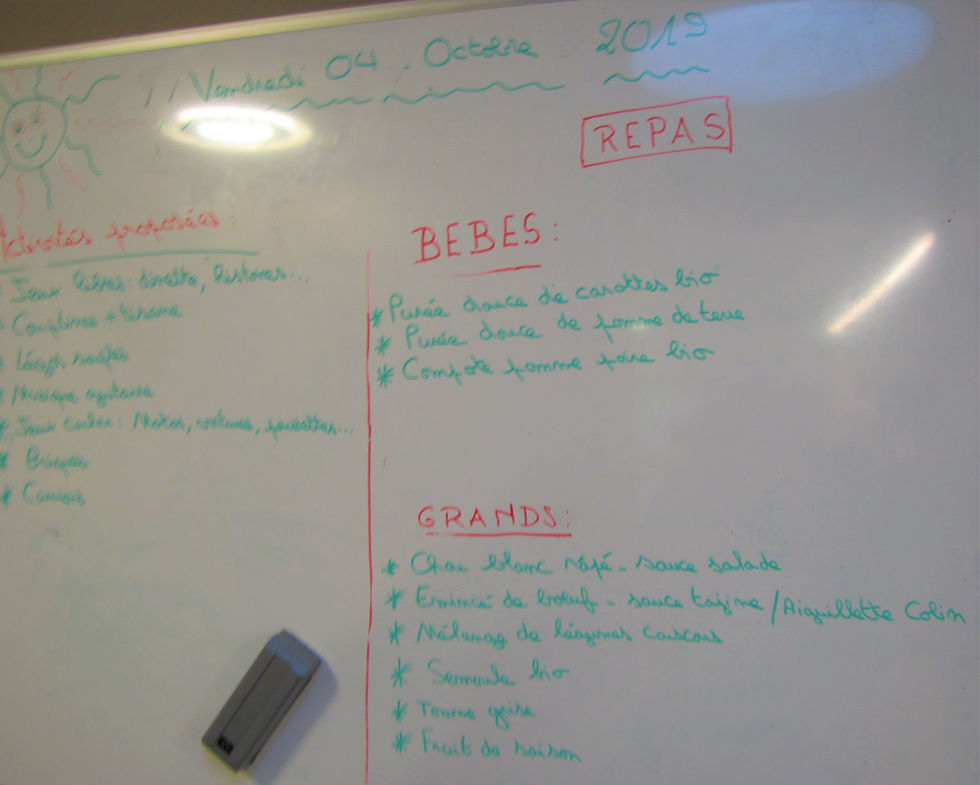 Vendredi 04 Octobre 2019
REPAS
Activités proposées :
Jeux libres : dinette, histoires...
* Comptines + tisane
* Légos souples
* Musique
* Jeux : Motos, voitures, poussettes...
* Briques
* Camions
BEBES :
* Purée douce de carottes bio
* Purée douce de pomme de terre
* Compote pomme poire bio
GRANDS :
* Chou blanc râpé - sauce salade
* Emincé de boeuf - sauce tajine / Aiguillette Colin
* Mélange de légumes couscous
* Semoule bio
* Tomme grise
* Fruit de saison